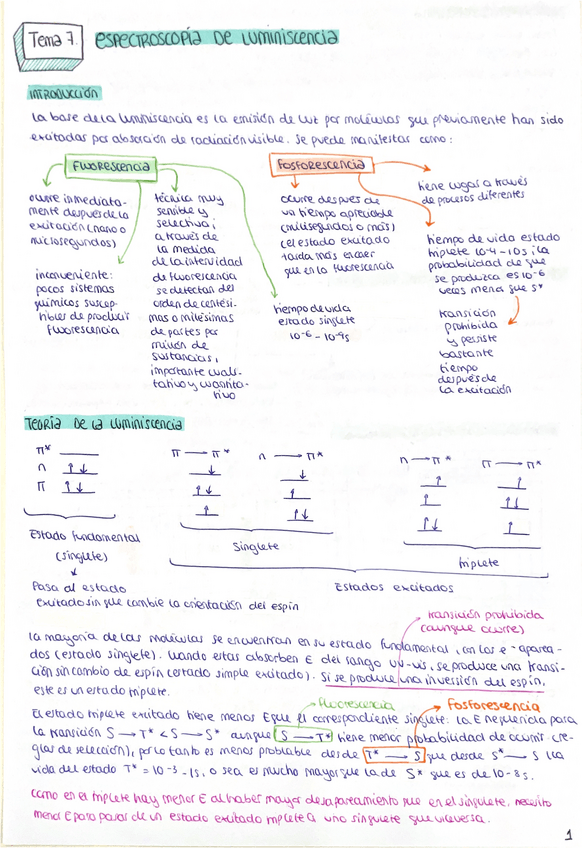 Tema 7. ESPECTROSCOPÍA DE LUMINISCENCIA
INTRODUCCIÓN
La base de la luminiscencia es la emisión de luz por moléculas que previamente han sido
excitadas por absorción de radiación visible. Se puede manifestar como:
FLUORESCENCIA
ocurre inmediata-
mente después de la
excitación (nano o
microsegundos)
inconveniente:
pocos sistemas
químicos suscep-
tibles de producir
fluorescencia
técnica muy
sensible y
selectiva;
a través de
la medida
de la intensidad
de fluorescencia
se detectan del
orden de centési-
mas o milésimas
de partes por
millón de
sustancias,
importante cuali-
tativo y cuantita-
tivo
tiempo de vida
estado singlete
10-6 - 10-9s
FOSFORESCENCIA
ocurre después de
un tiempo apreciable
(milisegundos o más)
(el estado excitado
tarda más en caer
que en la fluorescencia
tiene lugar a través
de procesos diferentes
tiempo de vida estado
triplete 10-4 - 10s; la
probabilidad de que
se produzca es 10-6
veces menor que S*
transición
prohibida
y persiste
bastante
tiempo
después de
la excitación
TEORÍA DE LA LUMINISCENCIA
π*
n ↑↓
π ↑↓
Estado fundamental
(singlete)
Pasa al estado
excitado sin que cambie la orientación del espín
π → π* n → π*
↓ ↓
↑↓ ↑
↑ ↑↓
Singlete
n → π* π → π*
↑ ↑
↑ ↑↓
↑↓ ↑
triplete
Estados excitados
transición prohibida
(aunque ocurre)
La mayoría de las moléculas se encuentran en su estado fundamental, con los e- aparea-
dos (estado singlete). Cuando estas absorben E del rango UV-vis, se produce una transi-
ción sin cambio de espín (estado simple excitado). Si se produce una inversión del espín,
este es un estado triplete.
fluorescencia Fosforescencia
El estado triplete excitado tiene menos E que el correspondiente singlete: la E requerida para
la transición S → T* < S → S* aunque S → T* tiene menor probabilidad de ocurrir (re-
glas de selección), por lo tanto es menos probable desde T* → S que desde S* → S (la
vida del estado T* = 10-3 - 1s, o sea es mucho mayor que la de S* que es de 10-8 s.
como en el triplete hay menor E al haber mayor desapareamiento que en el singulete, necesito
menor E para pasar de un estado excitado triplete a uno singulete que viceversa.
1